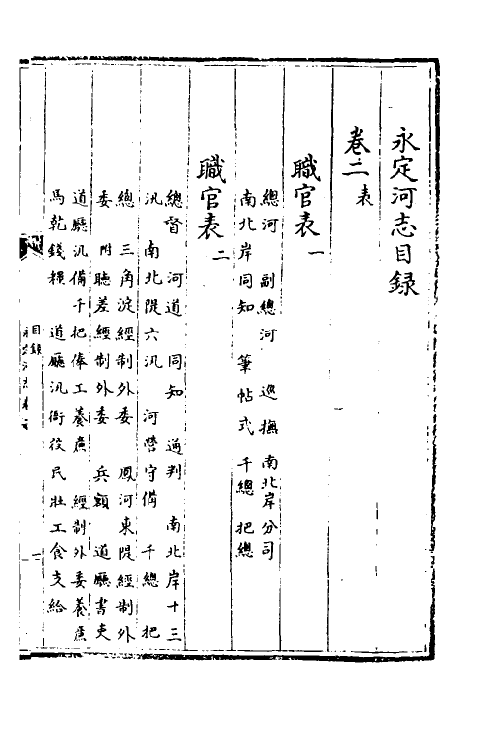 永定河志目錄
卷二 表
職官表 一
總河 副總河 巡撫 南北岸分司
南北岸同知 筆帖式 千總 把總
職官表 二
總督 河道 同知 通判 南北岸十三
汛 南北隄六汛 河營守備 千總 把
總 三角淀經制外委 鳳河東隄經制外
委 附聽差經制外委 兵額 道廳書吏
道廳汛備千把俸工養廉 經制外委養廉
馬乾錢糧 道廳汛衙役民壯工食支給
目錄